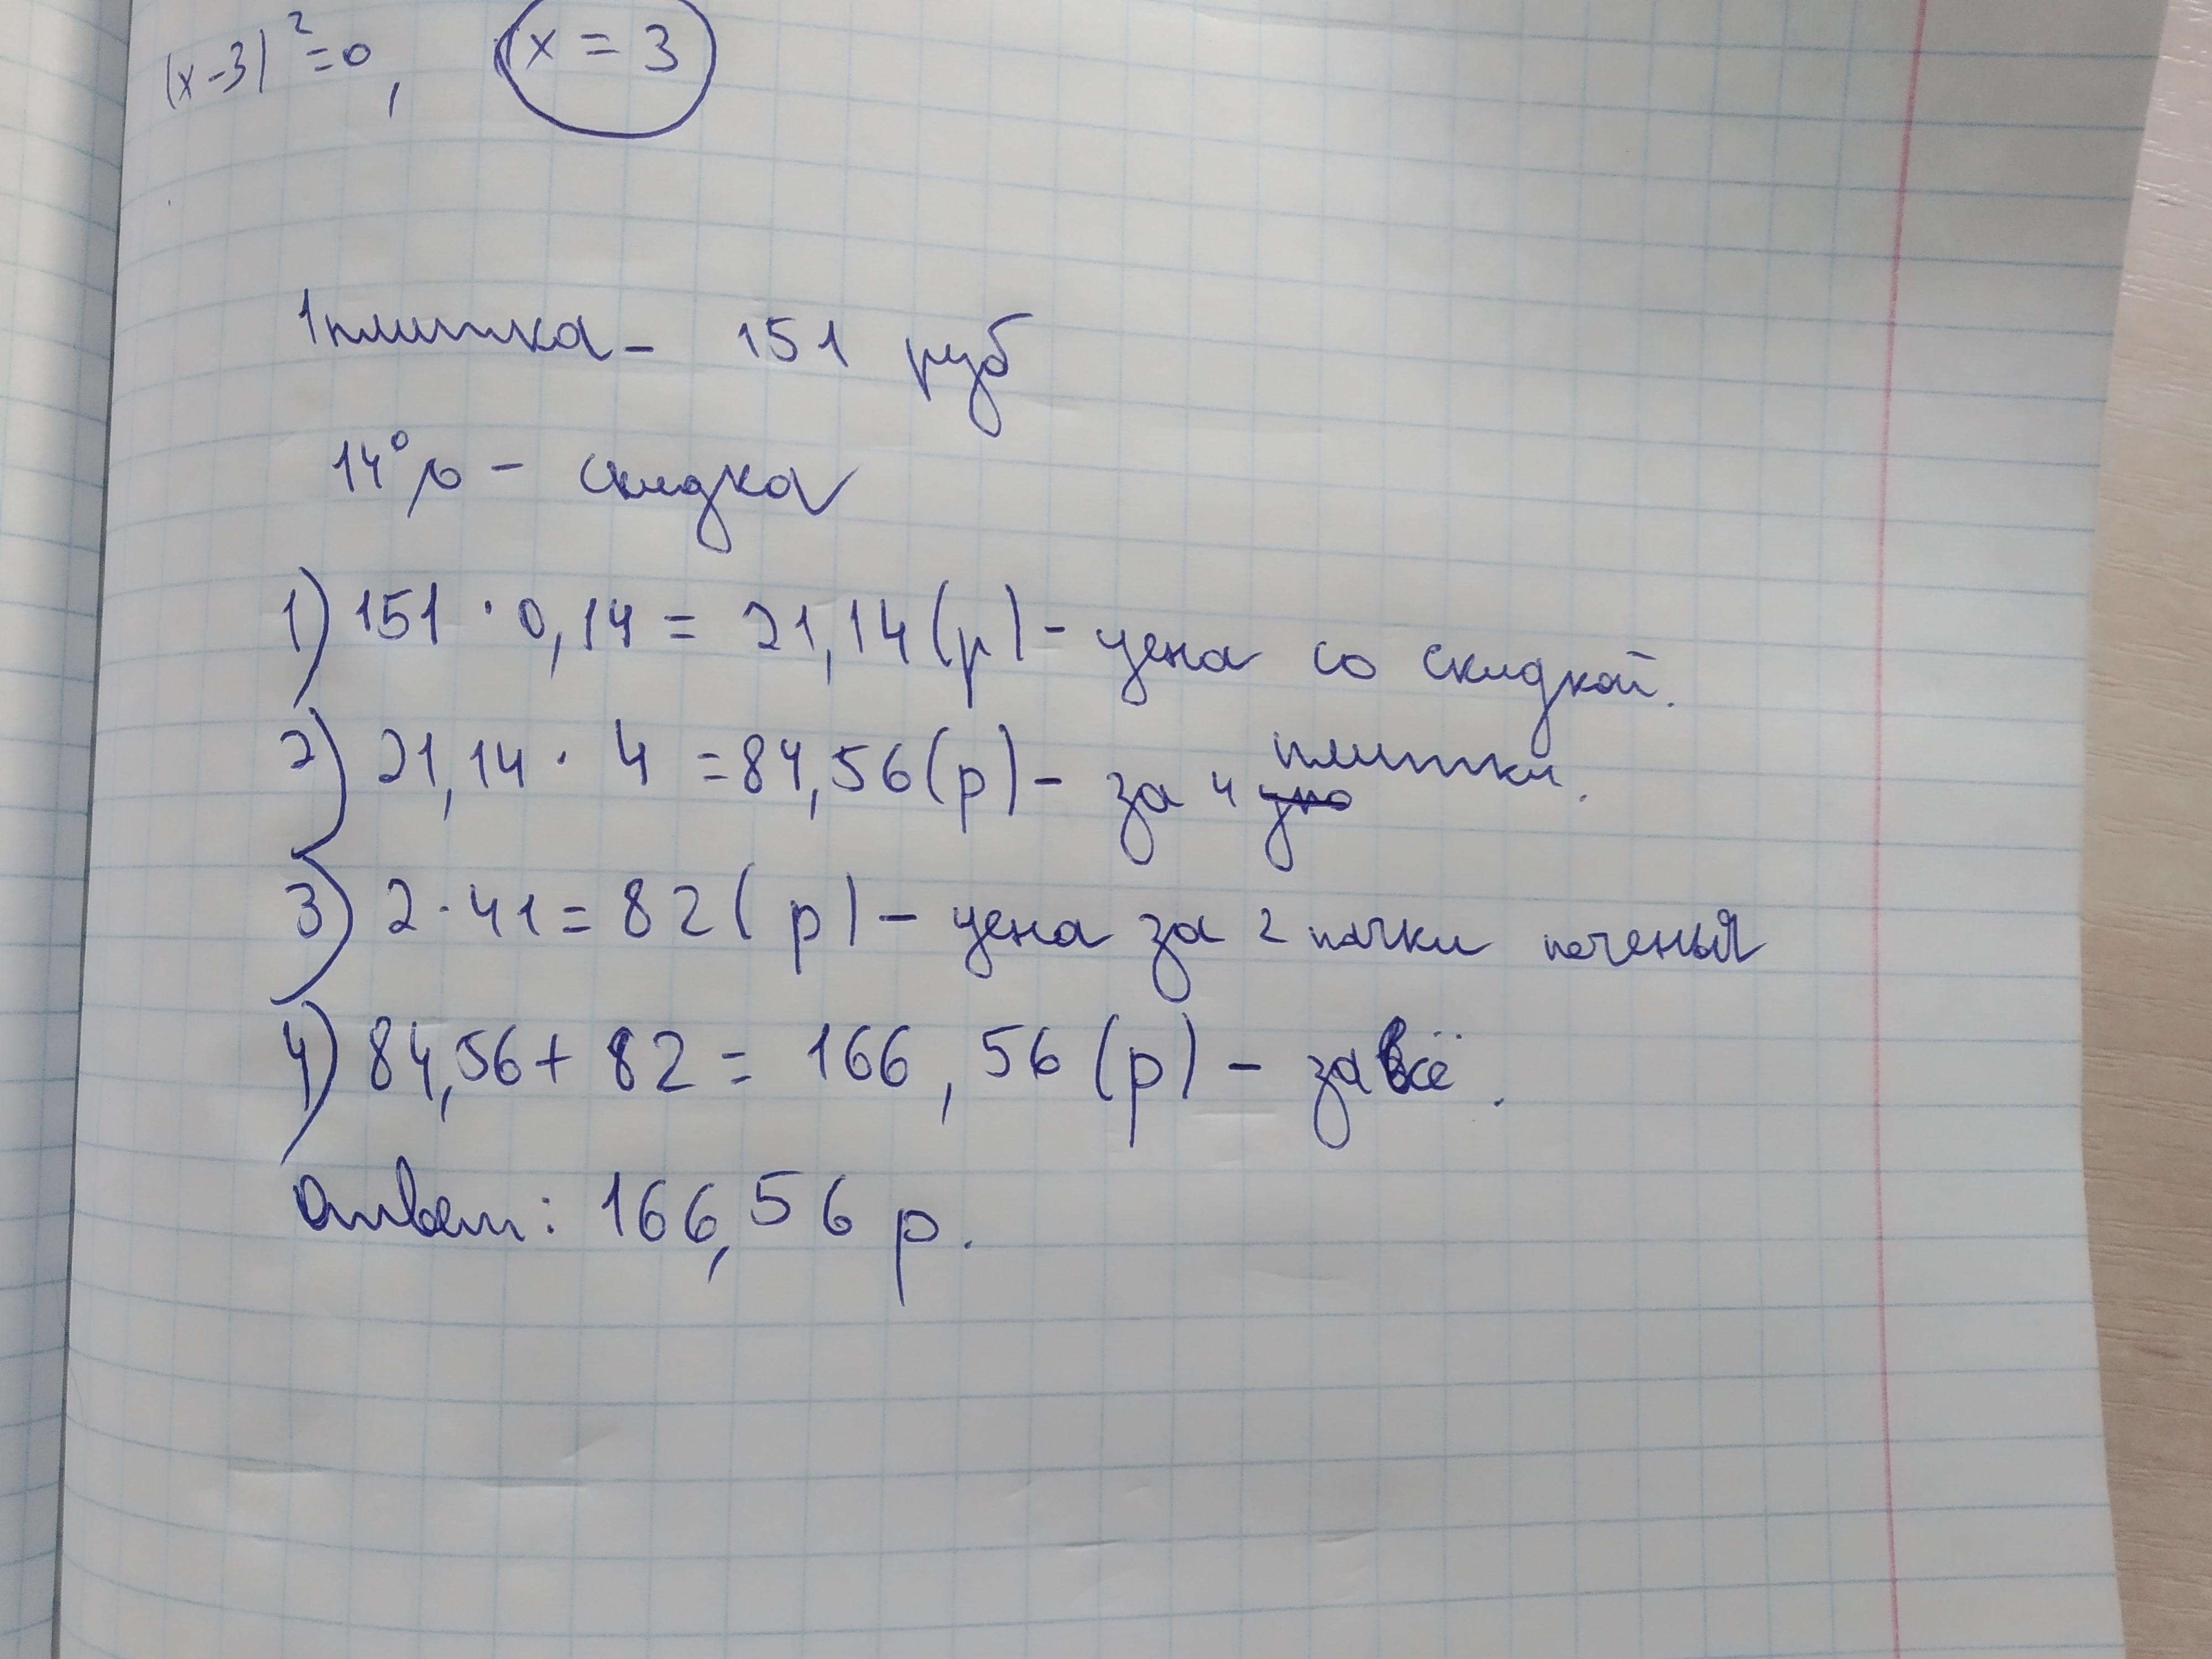 (x-3)²=0, x = 3
1 плитка - 151 руб
14% - скидка
1) 151 · 0,14 = 21,14 (р) - цена со скидкой.
2) 21,14 · 4 = 84,56 (р) - за 4 плитки.
3) 2 · 41 = 82 (р) - цена за 2 пачки печенья
4) 84,56 + 82 = 166,56 (р) - за всё.
Ответ: 166,56 р.